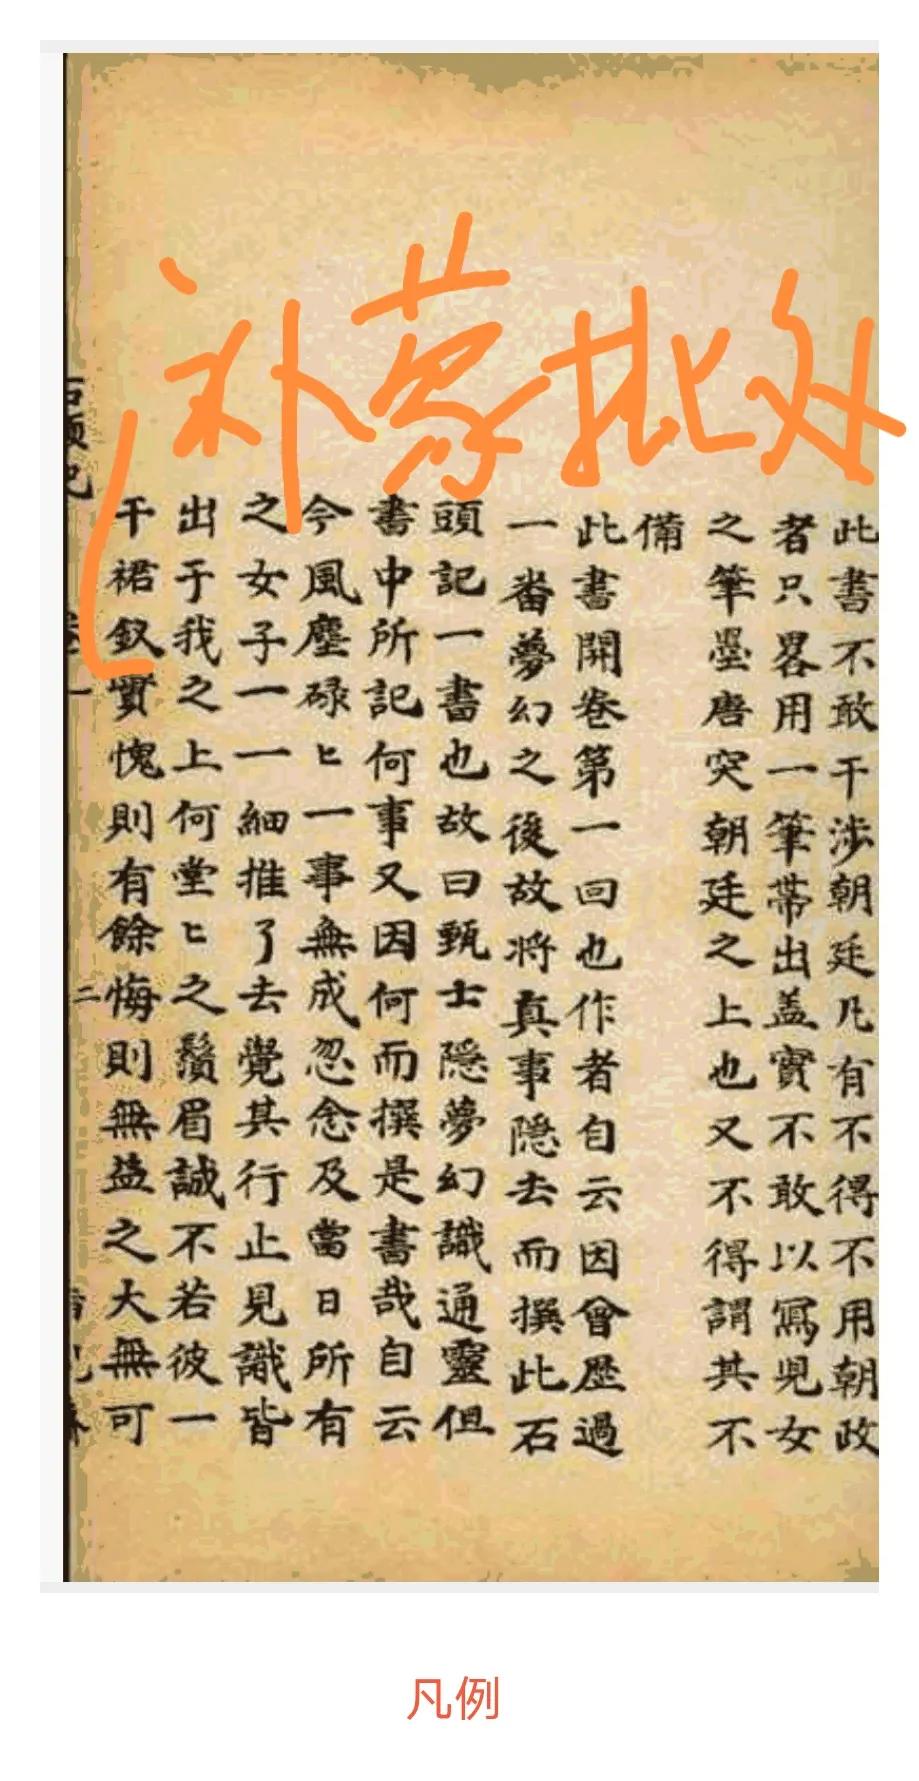 补蒙批处
此書不敢干涉朝廷凡有不得不用朝政
者只畧用一筆帶出盖實不敢以寫児女
之筆墨唐突朝廷之上也又不得謂其不
備
此書開卷第一回也作者自云因曾歷過
一畨夢幻之後故将真事隠去而撰此石
頭記一書也故曰甄士隠夢幻識通靈但
書中所記何事又因何而撰是書哉自云
今風塵碌匕一事無成忽念及當日所有
之女子一一細推了去覺其行止見識皆
出于我之上何堂匕之鬚眉誠不若彼一
干裙釵實愧則有餘悔則無益之大無可
二
凡例